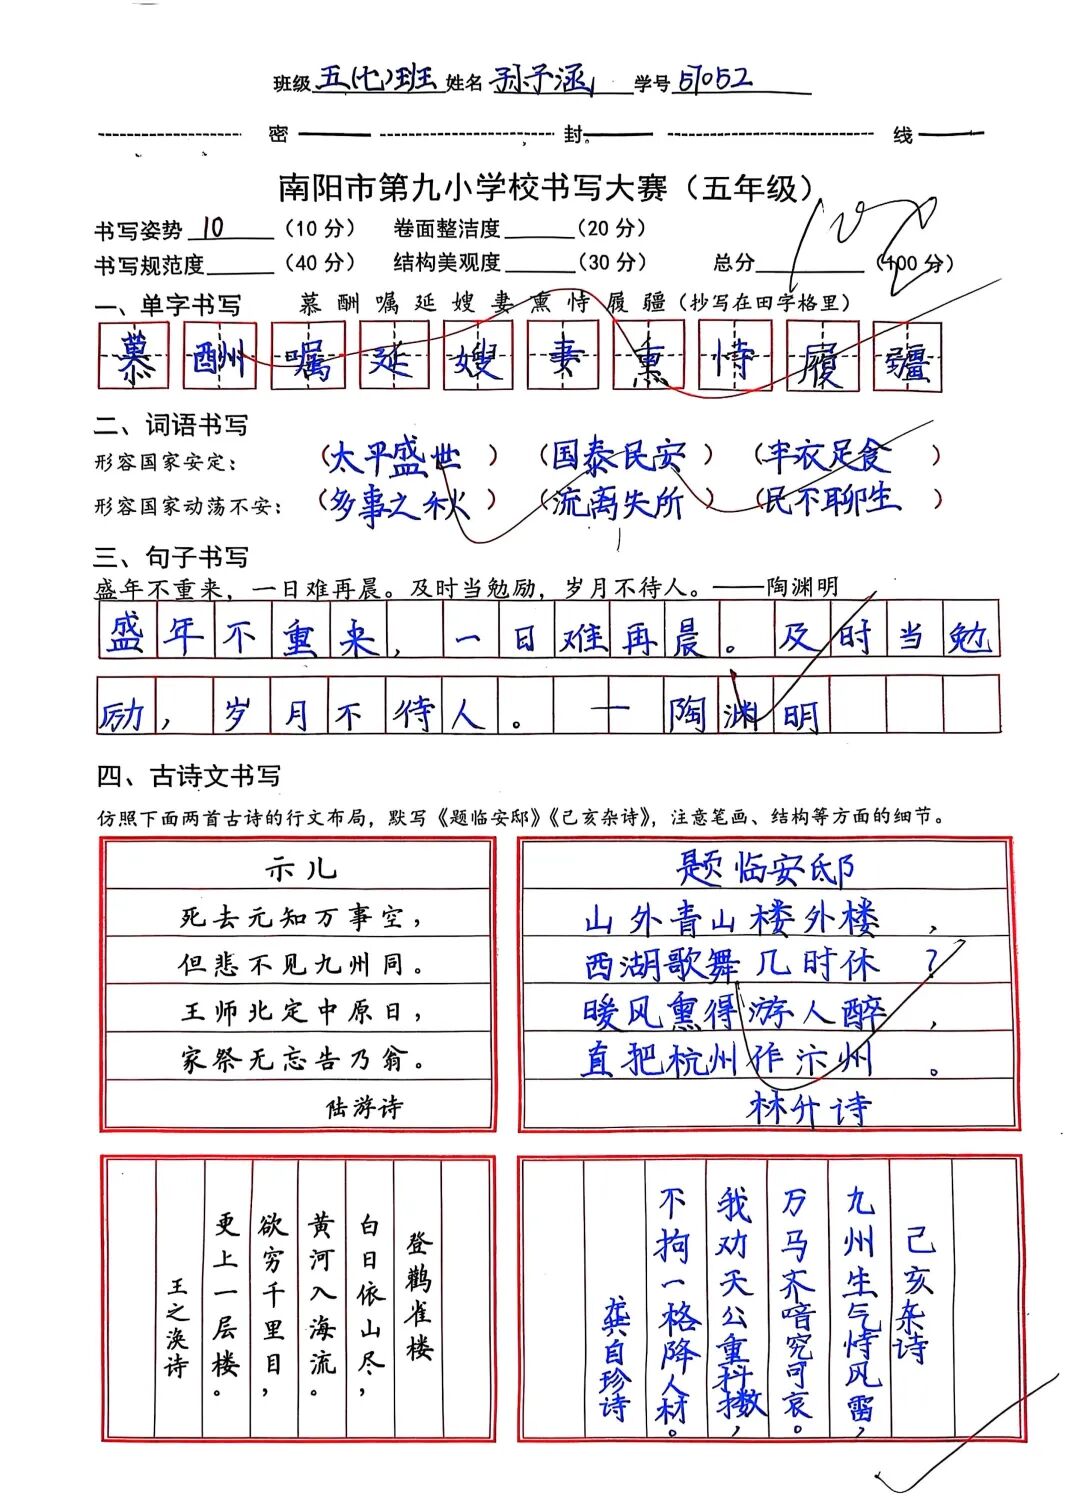 班级 五(七)班 姓名 孙子涵 学号 57052
密 封 线
南阳市第九小学校书写大赛（五年级）
书写姿势 10 （10 分） 卷面整洁度 （20 分）
书写规范度 （40 分） 结构美观度 （30 分） 总分 （100 分）
一、单字书写 慕 酬 嘱 延 嫂 妻 熏 恃 履 疆（抄写在田字格里）
慕 酬 嘱 延 嫂 妻 熏 恃 履 疆
二、词语书写
形容国家安定： （太平盛世） （国泰民安） （丰衣足食）
形容国家动荡不安： （多事之秋） （流离失所） （民不聊生）
三、句子书写
盛年不重来，一日难再晨。及时当勉励，岁月不待人。——陶渊明
盛年不重来，一日难再晨。及时当勉
励，岁月不待人。一陶渊明
四、古诗文书写
仿照下面两首古诗的行文布局，默写《题临安邸》《己亥杂诗》，注意笔画、结构等方面的细节。
示儿
死去元知万事空，
但悲不见九州同。
王师北定中原日，
家祭无忘告乃翁。
陆游诗
题临安邸
山外青山楼外楼，
西湖歌舞几时休？
暖风熏得游人醉，
直把杭州作汴州。
林升诗
登鹳雀楼
白日依山尽，
黄河入海流。
欲穷千里目，
更上一层楼。
王之涣诗
己亥杂诗
九州生气恃风雷，
万马齐喑究可哀。
我劝天公重抖擞，
不拘一格降人材。
龚自珍诗